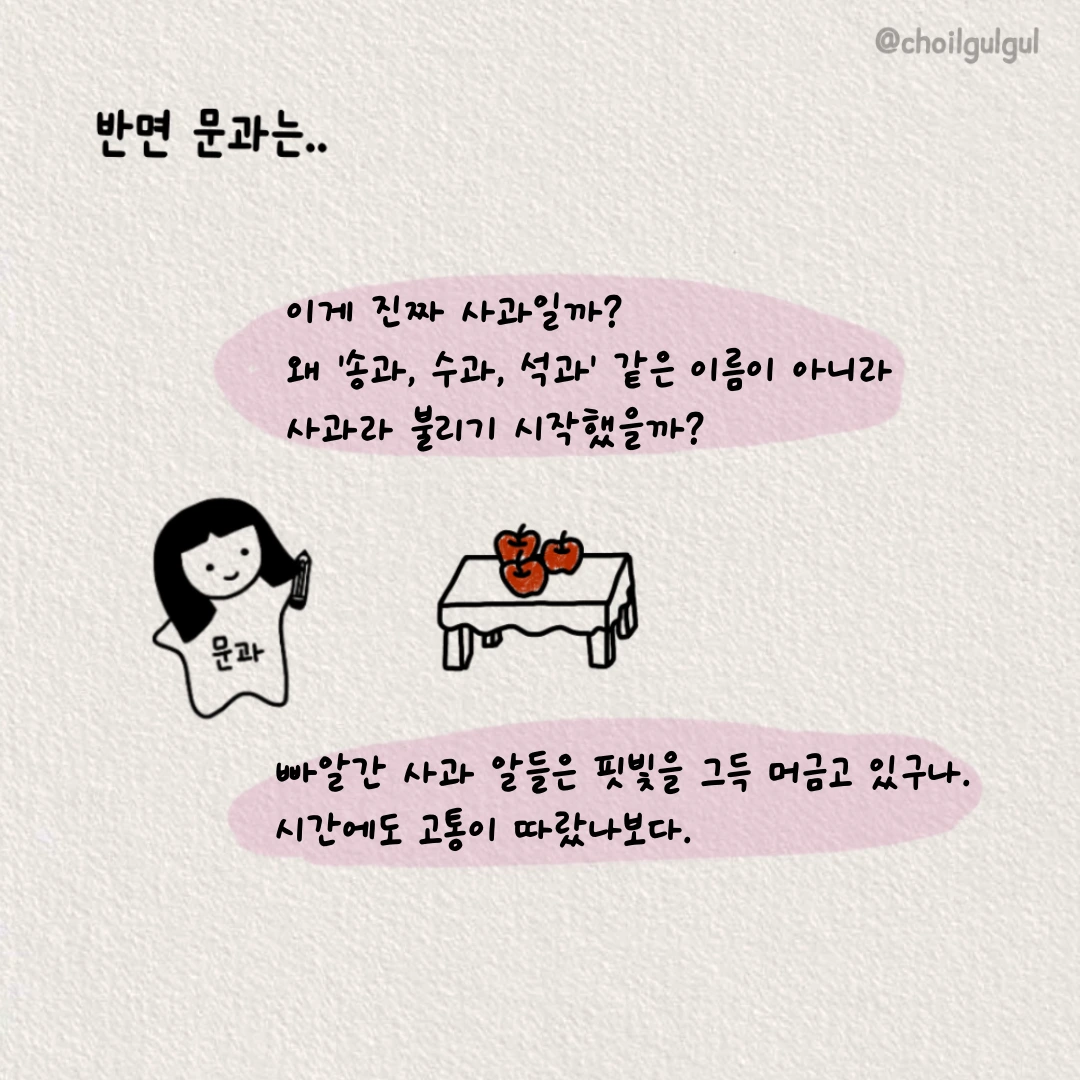 @choilgulgul
반면 문과는..
이게 진짜 사과일까?
왜 '송과, 수과, 석과' 같은 이름이 아니라
사과라 불리기 시작했을까?
문과
빠알간 사과 알들은 핏빛을 그득 머금고 있구나.
시간에도 고통이 따랐나보다.